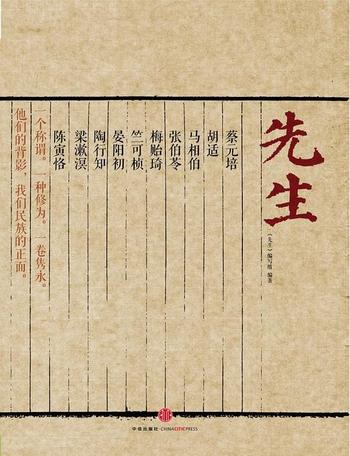 先生
《先生》编写组 编著
蔡元培
胡适
马相伯
张伯苓
梅贻琦
竺可桢
晏阳初
陶行知
梁漱溟
陈寅恪
一个称谓。一种修为。一卷隽永。
他们的背影，我们民族的正面。
中信出版社·CHINACITICPRESS